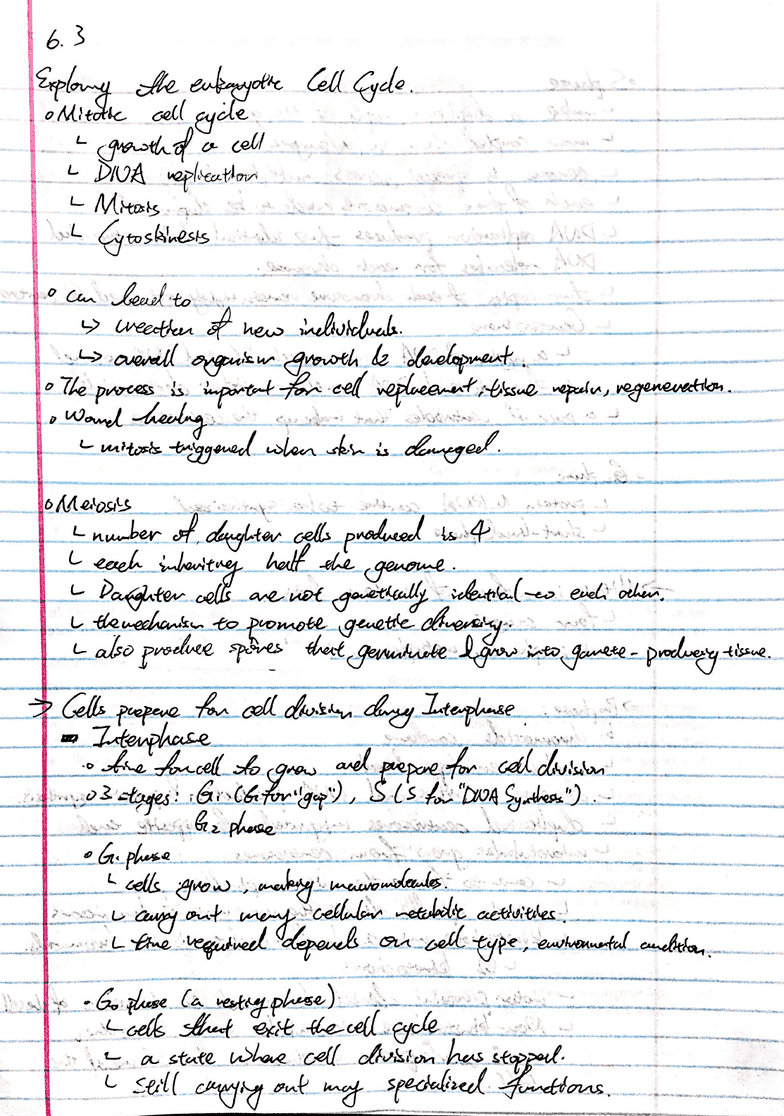 6.3
Exploring the eukaryotic Cell Cycle.
o Mitotic cell cycle
└ growth of a cell
└ DNA replication
└ Mitosis
└ Cytoskinesis
o can lead to
↳ creation of new individuals.
↳ overall organism growth & development.
o The process is important for cell replacement, tissue repair, regeneration.
o Wound healing
└ mitosis triggered when skin is damaged.
o Meiosis
└ number of daughter cells produced is 4
└ each inheriting half the genome.
└ Daughter cells are not genetically identical to each other.
└ the mechanism to promote genetic diversity.
└ also produce spores that germinate & grow into gamete-producing tissue.
→ Cells prepare for cell division during Interphase
- Interphase
o time for cell to grow and prepare for cell division
o 3 stages: G₁ (G for "gap"), S (S for "DNA Synthesis")
G₂ phase
• G₁ phase
└ cells grow, making macromolecules.
└ carry out many cellular metabolic activities.
└ time required depends on cell type, environmental condition.
• G₀ phase (a resting phase)
└ cells that exit the cell cycle
└ a state where cell division has stopped.
└ still carrying out many specialized functions.